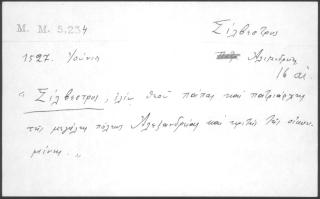 M. M. 5.234
Σίλβεστρος
1527. Ἰούνιος
Ἀλεξανδρείας
16 αἰ.
« Σίλβεστρος, ἐλέῳ Θεοῦ πάπας καὶ πατριάρχης
τῆς μεγάλης πόλεως Ἀλεξανδρείας καὶ κριτὴς τῆς οἰκου-
μένης. »